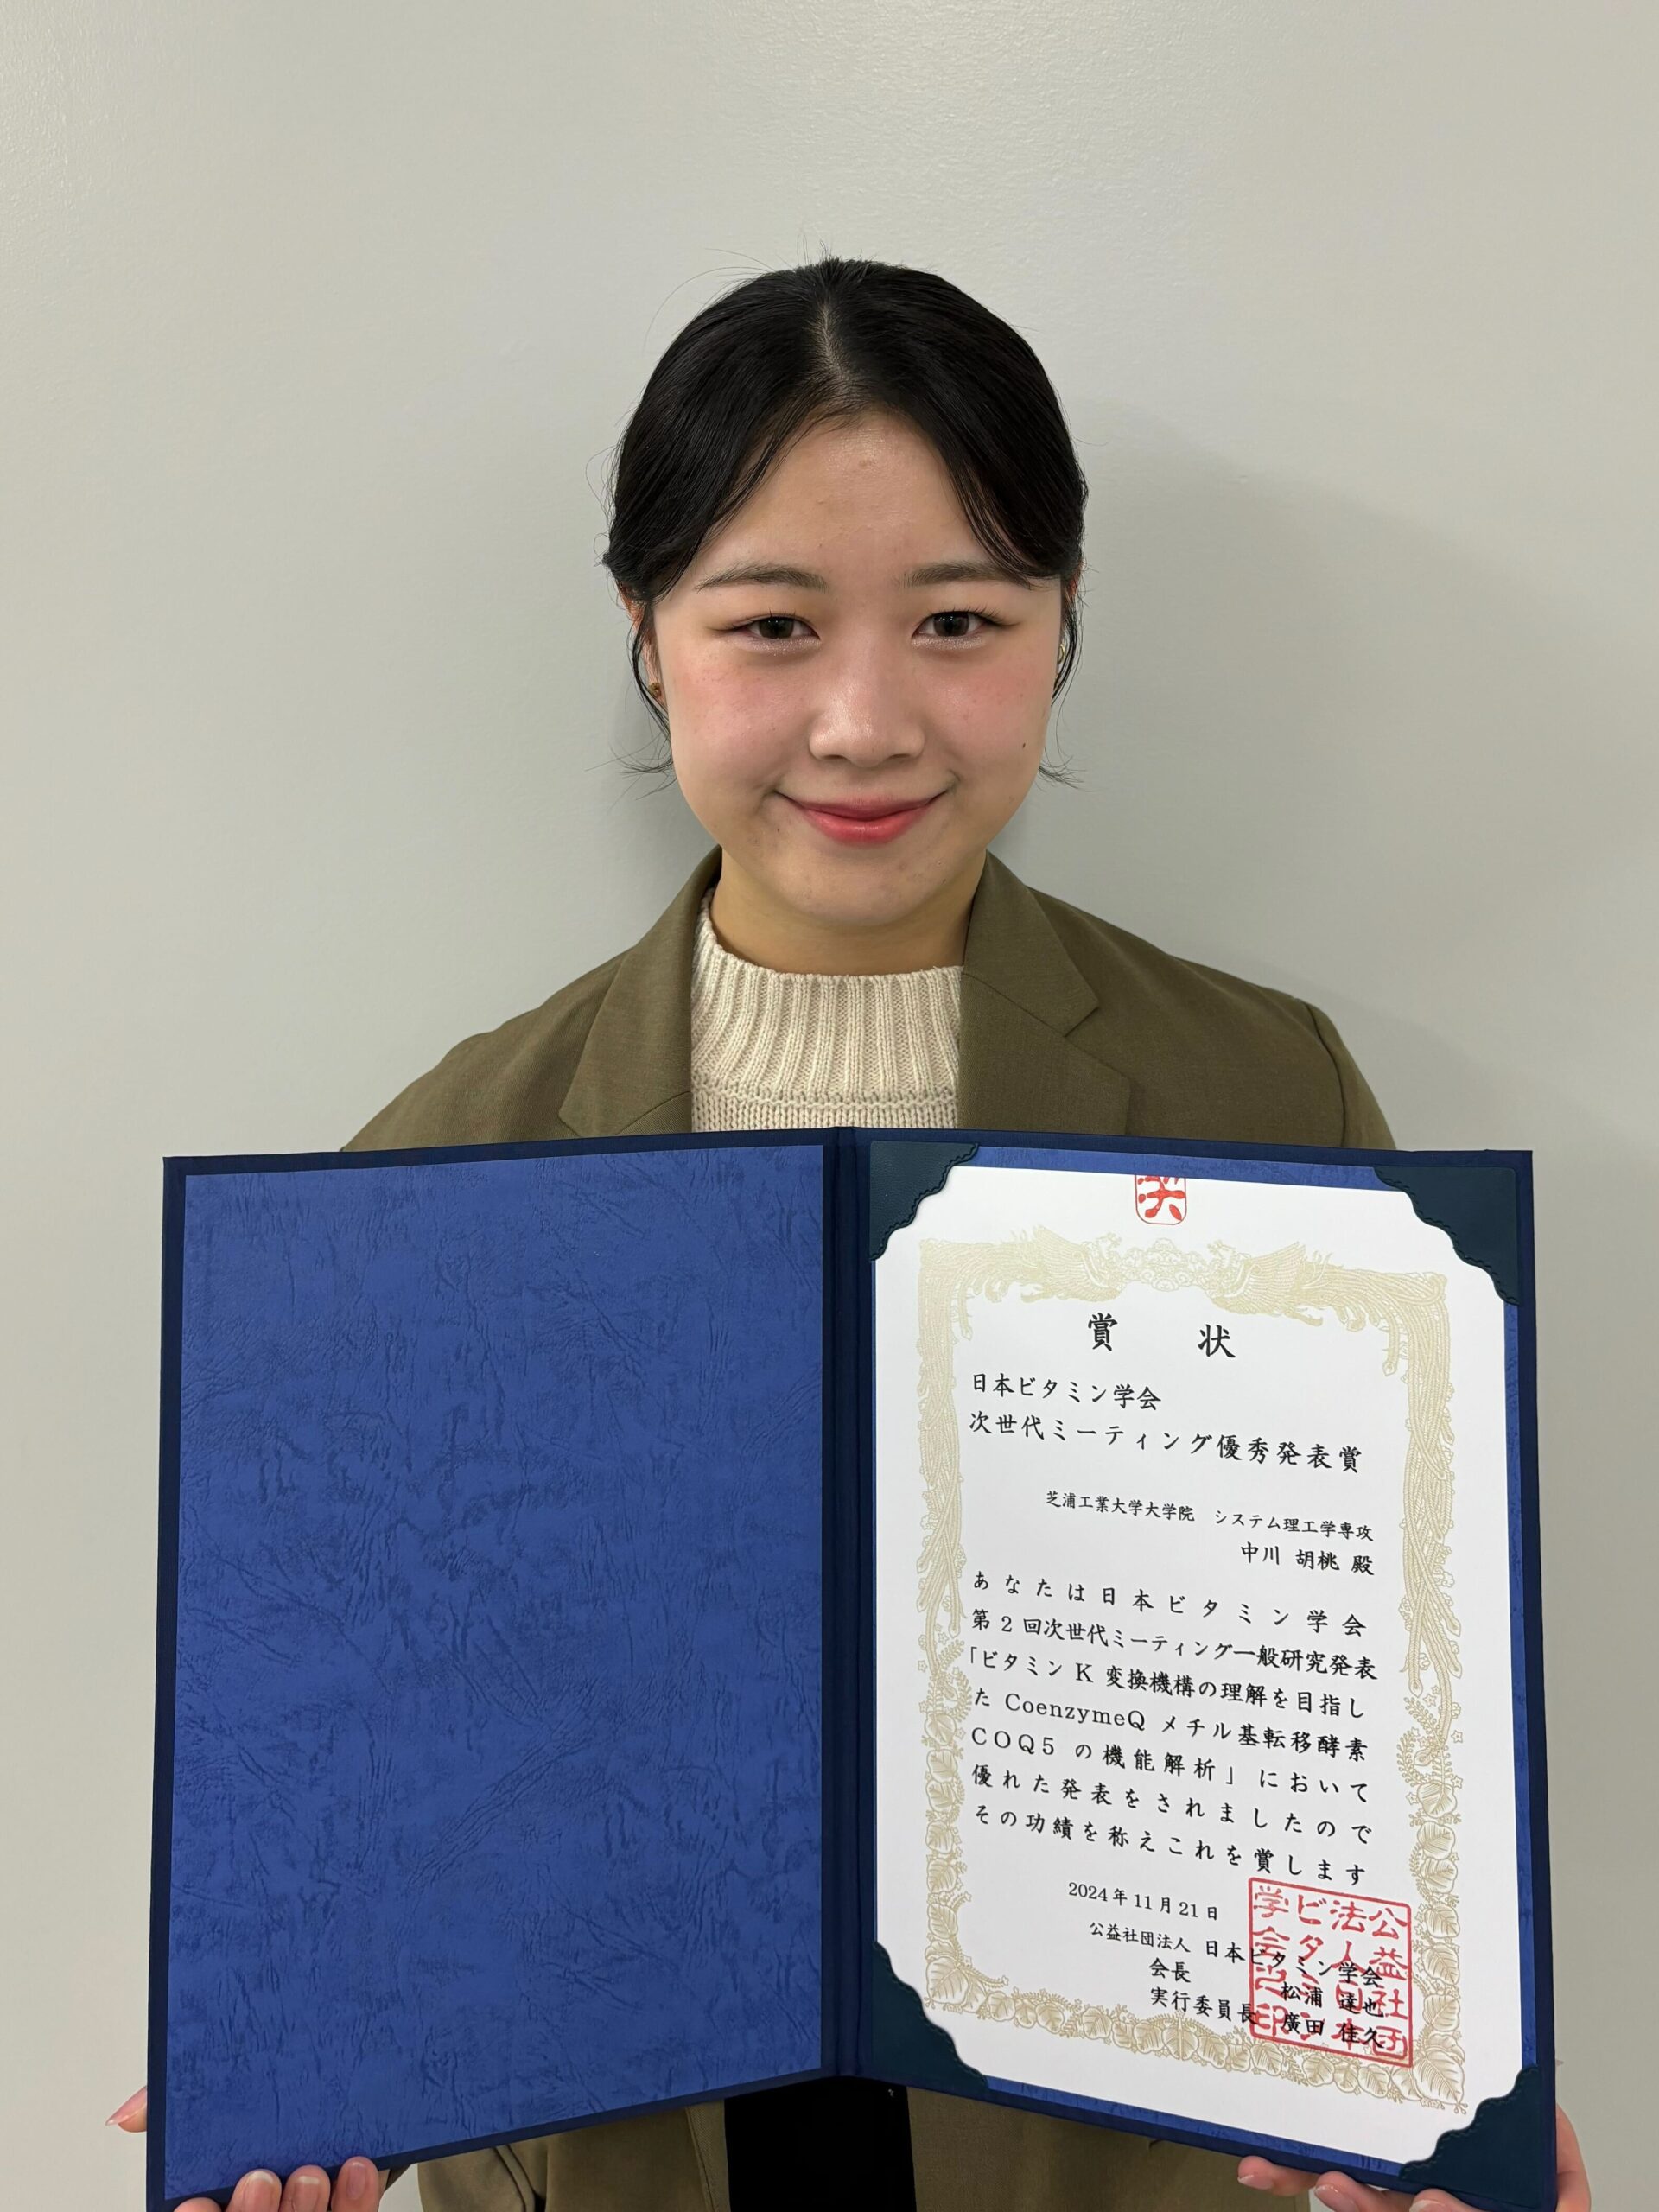 賞 状
日本ビタミン学会
次世代ミーティング優秀発表賞
芝浦工業大学大学院 システム理工学専攻
中川 胡桃 殿
あなたは日本ビタミン学会
第2回次世代ミーティング一般研究発表
「ビタミンK 変換機構の理解を目指し
た CoenzymeQ メチル基転移酵素
COQ5 の機能解析」において
優れた発表をされましたので
その功績を称えこれを賞します
2024年11月21日
公益社団法人 日本ビタミン学会
会長 松浦 達也
実行委員長 廣田 佳久
公益社団
法人日本
ビタミン
学会之印